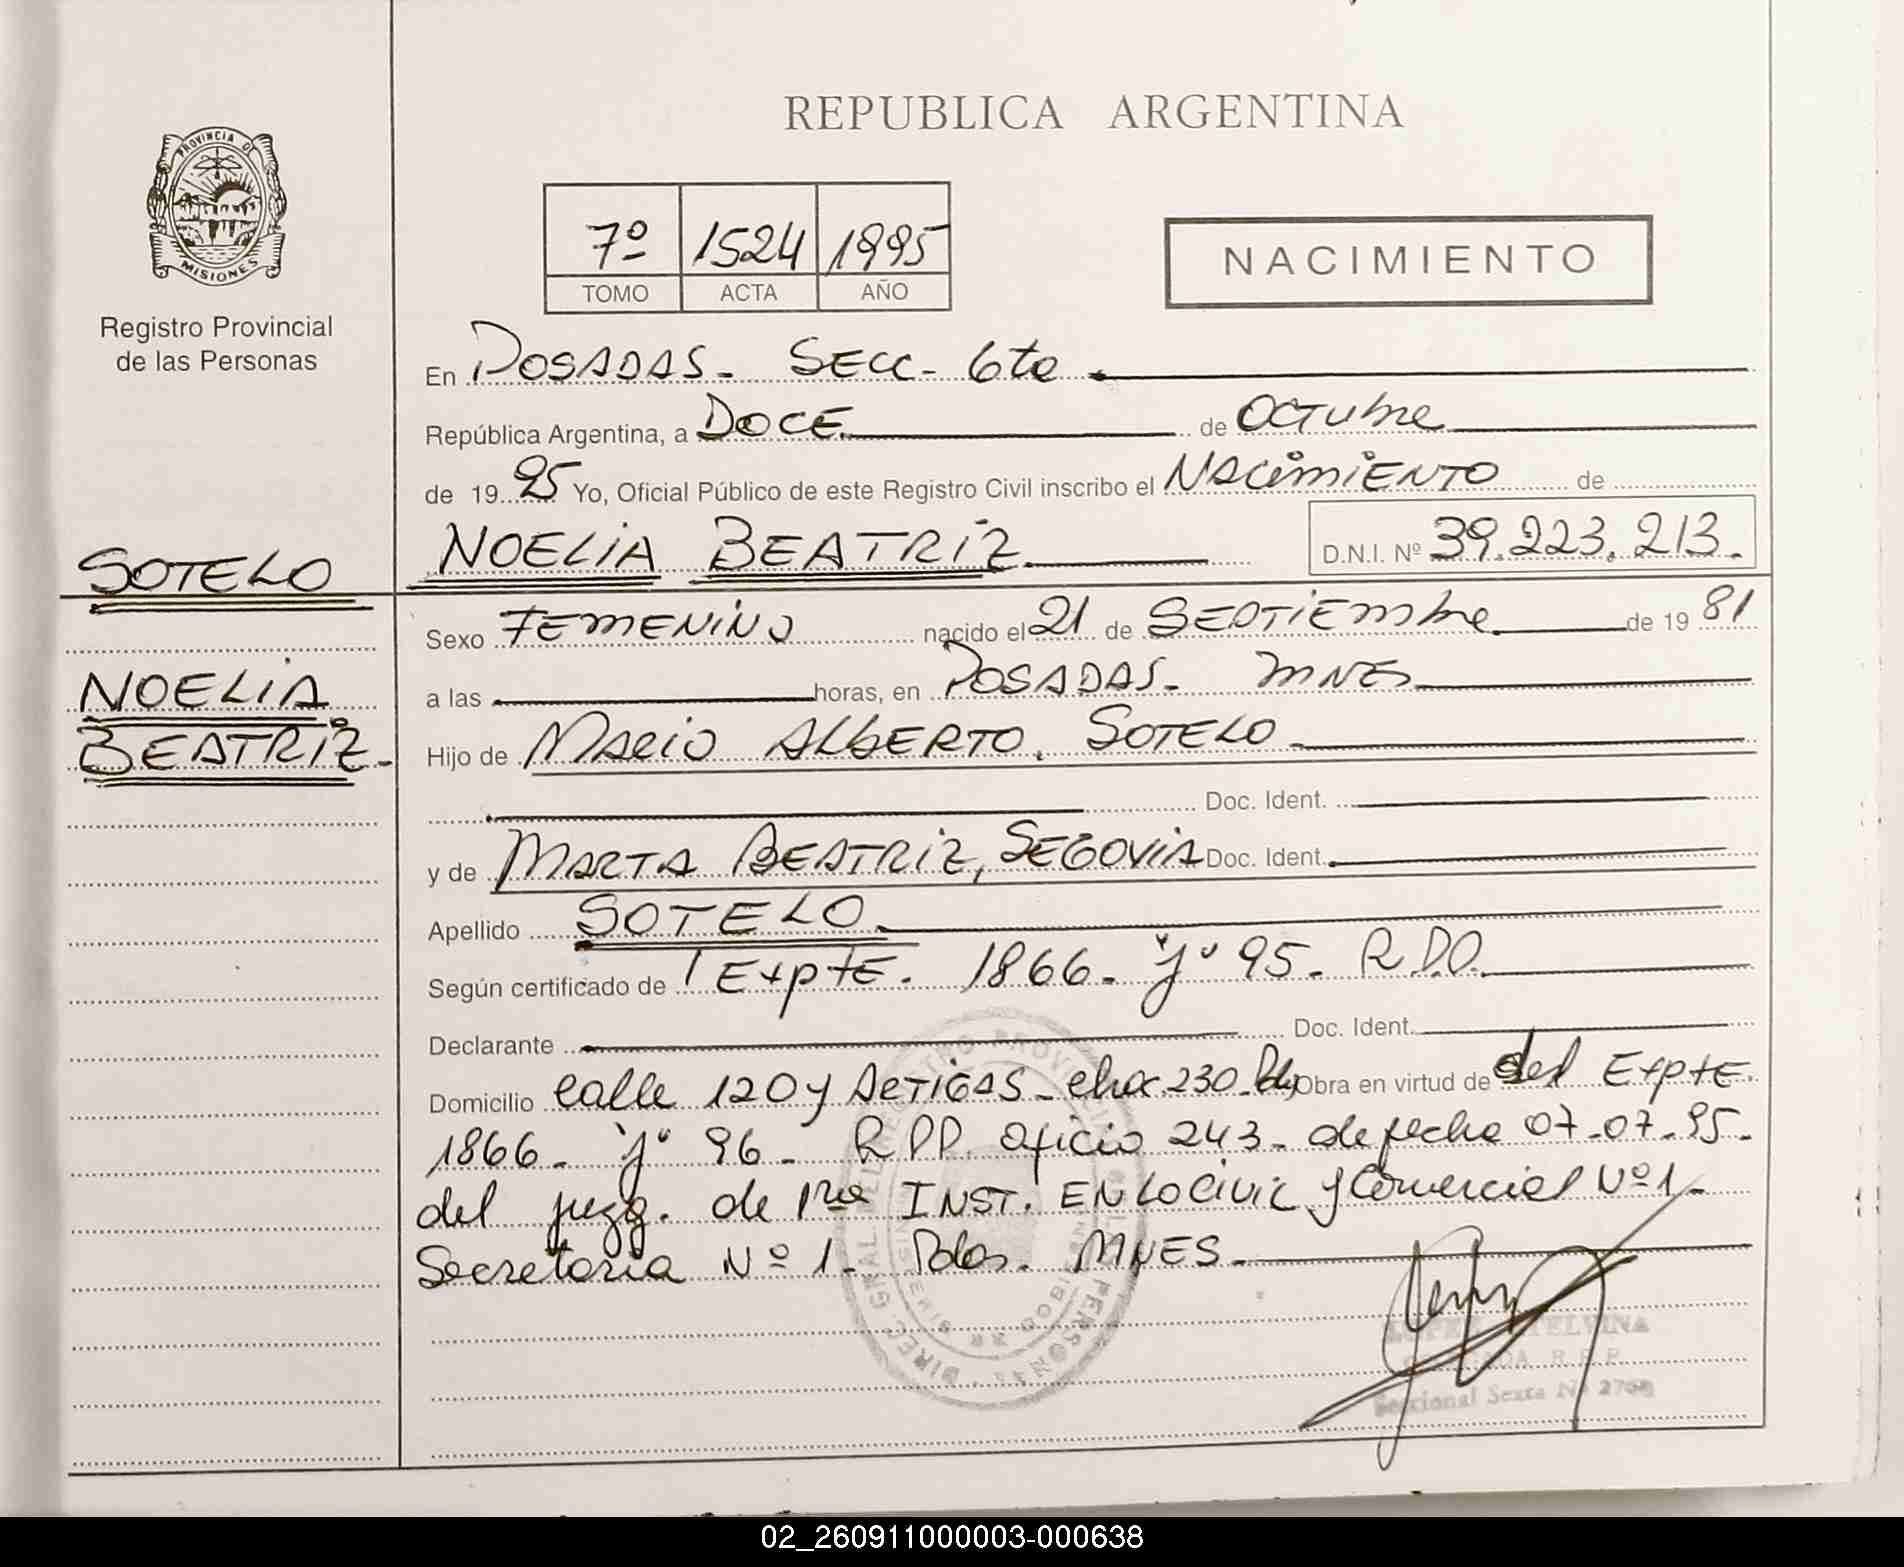 REPUBLICA ARGENTINA
PROVINCIA D
MISIONES
Registro Provincial
de las Personas
7º 1524 1995
TOMO ACTA AÑO
NACIMIENTO
En POSADAS - SECC - 6ta
República Argentina, a DOCE de OCTUbre
de 1995 Yo, Oficial Público de este Registro Civil inscribo el NACimiENTO de
NOELiA BEATRiZ D.N.I. Nº 39.223.213.
SOTELO
NOELiA
BEATRiZ -
Sexo FEMENiNO nacido el 21 de SEPTiEmbre de 1981
a las horas, en POSADAS - MNES
Hijo de MARiO ALbERTO, SOTELO
Doc. Ident.
y de MARTA BEATRiZ, SEGOViA Doc. Ident.
Apellido SOTELO
Según certificado de ExptE. 1866 - 95 - R.P.O.
Declarante Doc. Ident.
Domicilio calle 120 y ARTiGAS - chac. 230 - Obra en virtud de del ExptE.
1866 - 96 - R.P.P. oficio 243 - de fecha 07-07-95 -
del juzg. de 1ra INST. EN LO CiViL y Comercial Nº 1 -
Secretaria Nº 1 - Pdas. MNES -
ELVINA
R.P.P.
Seccional Sexta Nº
02_260911000003-000638